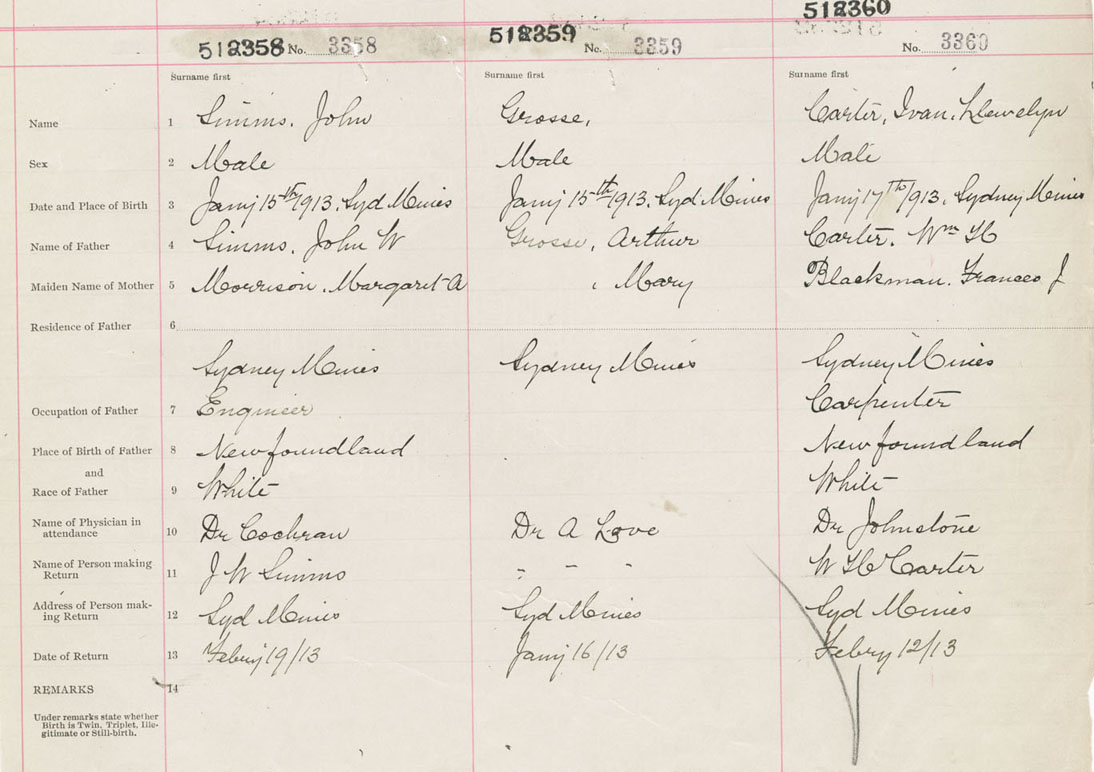 512358 No. 3358 512359 No. 3359 512360 No. 3360
Surname first Surname first Surname first
Name 1 Simms, John Grosse, Carter, Ivan. Llewelyn
Sex 2 Male Male Male
Date and Place of Birth 3 Jany 15th 1913. Syd Mines Jany 15th 1913. Syd Mines Jany 17th 1913. Sydney Mines
Name of Father 4 Simms, John W Grosse, Arthur Carter. Wm H
Maiden Name of Mother 5 Morrison, Margaret A , Mary Blackman. Frances J
Residence of Father 6
Sydney Mines Sydney Mines Sydney Mines
Occupation of Father 7 Engineer Carpenter
Place of Birth of Father 8 Newfoundland Newfoundland
and
Race of Father 9 White White
Name of Physician in
attendance 10 Dr Cochran Dr A Love Dr Johnstone
Name of Person making
Return 11 J W Simms " " " W H Carter
Address of Person mak-
ing Return 12 Syd Mines Syd Mines Syd Mines
Date of Return 13 Febry 19/13 Jany 16/13 Febry 12/13
REMARKS 14
Under remarks state whether
Birth is Twin, Triplet, Ille-
gitimate or Still-birth.